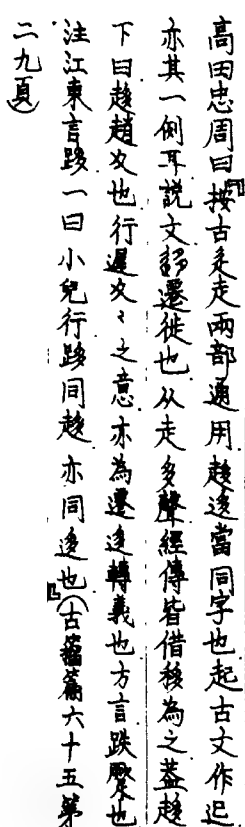 高田忠周曰『按古辵走兩部通用趍迻當同字也起古文作𨑔
亦其一例耳說文迻遷徙也从走多聲經傳皆借移為之蓋趍
下曰趍趙夂也行遲夂〻之意亦為遷迻轉義也方言跌蹷也
注江東言跢一曰小兒行跢同趍亦同迻也』(古籀篇六十五第
二九頁)